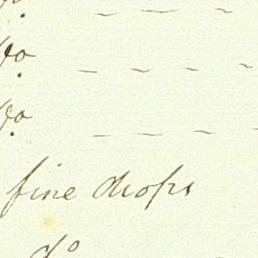 do
do
fine drops
do